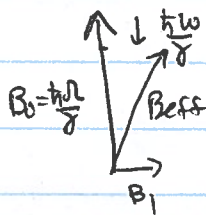 ħω/γ
B₀=ħΩ/γ
Beff
B₁